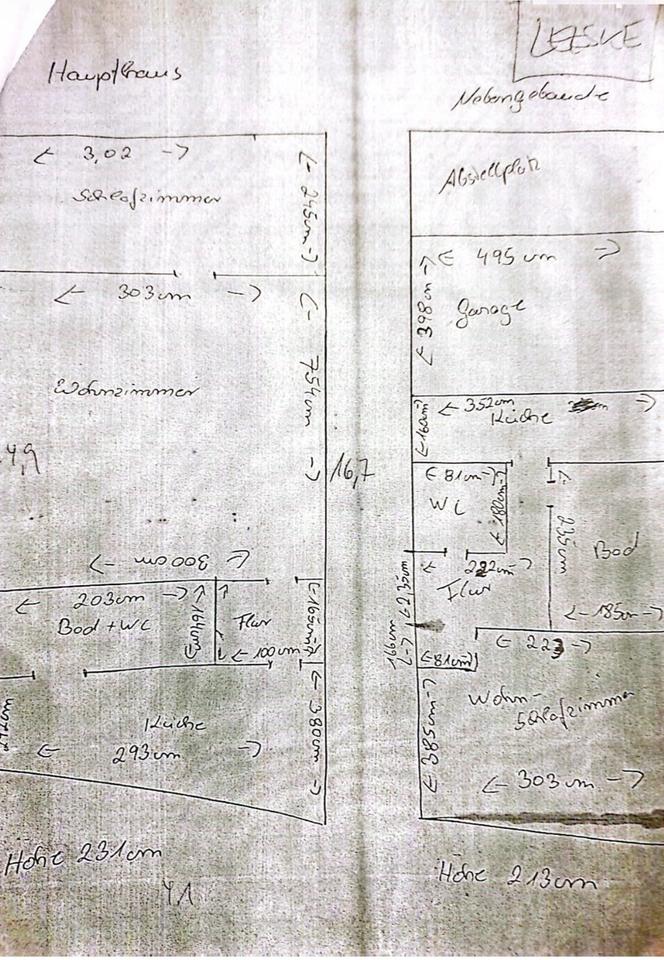 LESKE
Haupthaus
Nebengebäude
3,02
Schlafzimmer
245cm
303cm
Wohnzimmer
754cm
4,9
16,7
300cm
203cm
Bad + WC
164cm
Flur
165cm
100cm
Küche
293cm
380cm
292cm
Höhe 231cm
41
Abstellplatz
495 cm
398cm
Garage
352cm
Küche
160cm
81cm
WC
180cm
Flur
235cm
Bad
185cm
166cm
223
81cm
Wohn-
Schlafzimmer
385cm
303 cm
Höhe 213cm